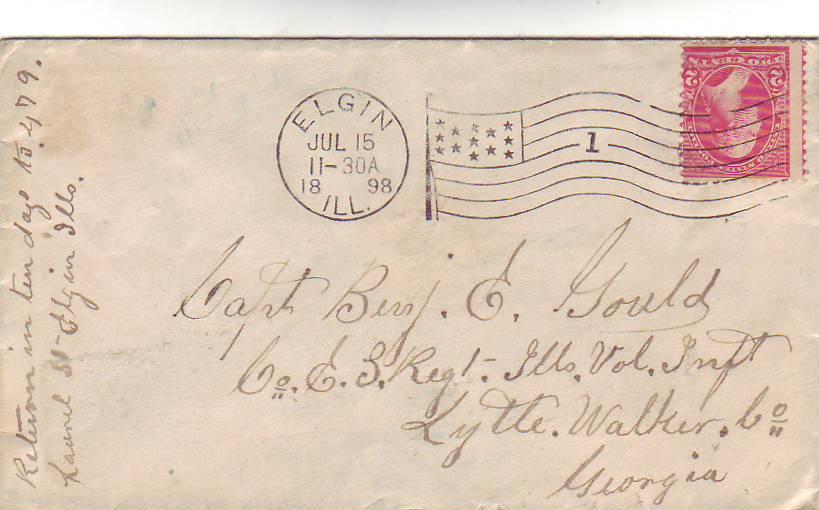 Return in ten days to 479.
Laurel St- Elgin Ills.
ELGIN
JUL 15
11-30A
18 98
ILL.
1
2 2
Capt Benj. E. Gould
Co. E. 3. Regt- Ills. Vol. Inft
Lytle. Walker. Co
Georgia